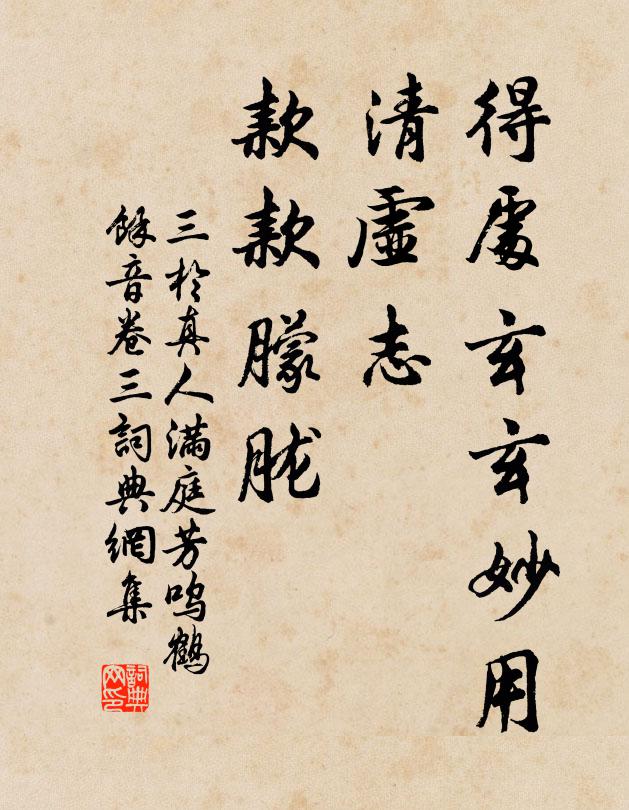 得處玄玄妙用
清虛志
款款朦朧
三於真人滿庭芳鸣鶴
餘音卷三詞典網集
詞典
网印